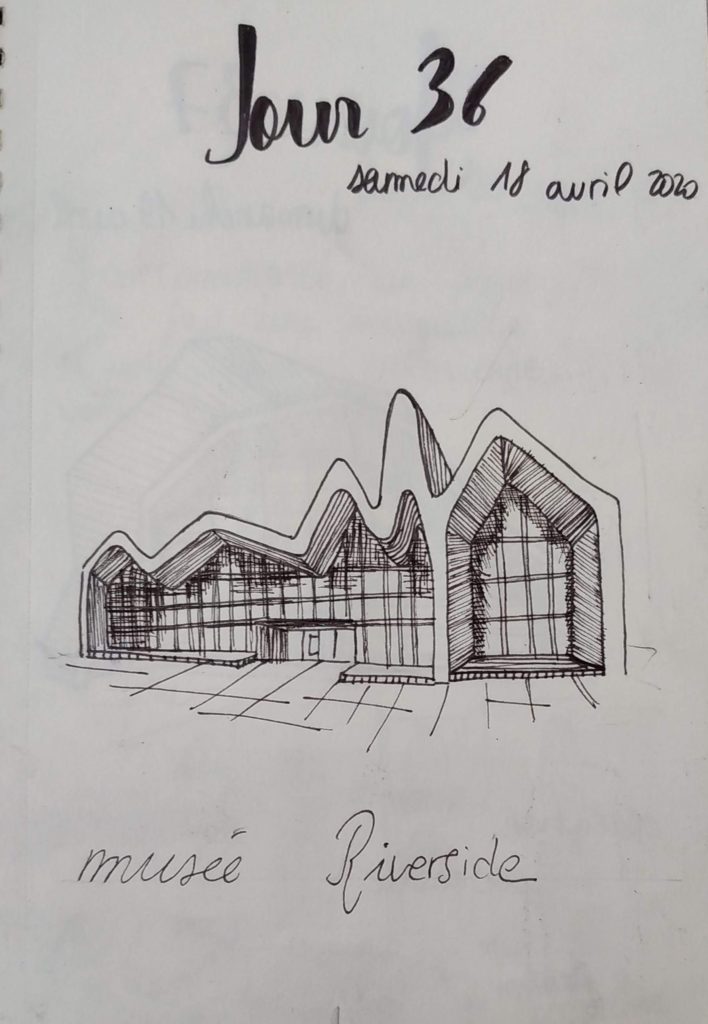 Jour 36
samedi 18 avril 2020
musée Riverside